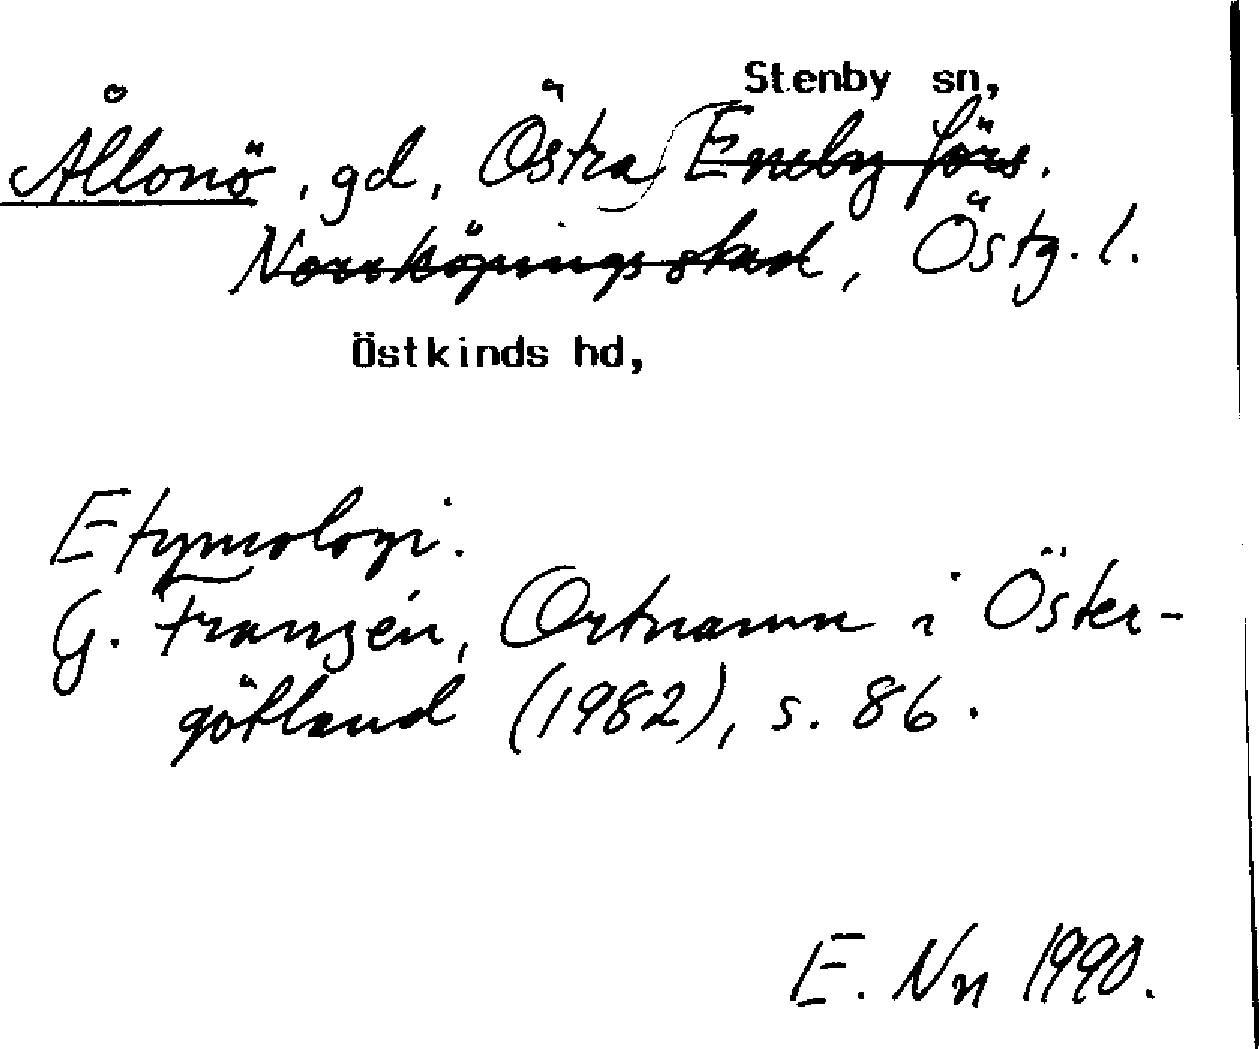 Stenby sn,
Ållonö, gd, Östra Eneby förs.
Norrköpings stad, Östg. l.
Östkinds hd,
Etymologi.
G. Franzén, Ortnamn i Öster-
götland (1982), s. 86.
E. Nn 1990.